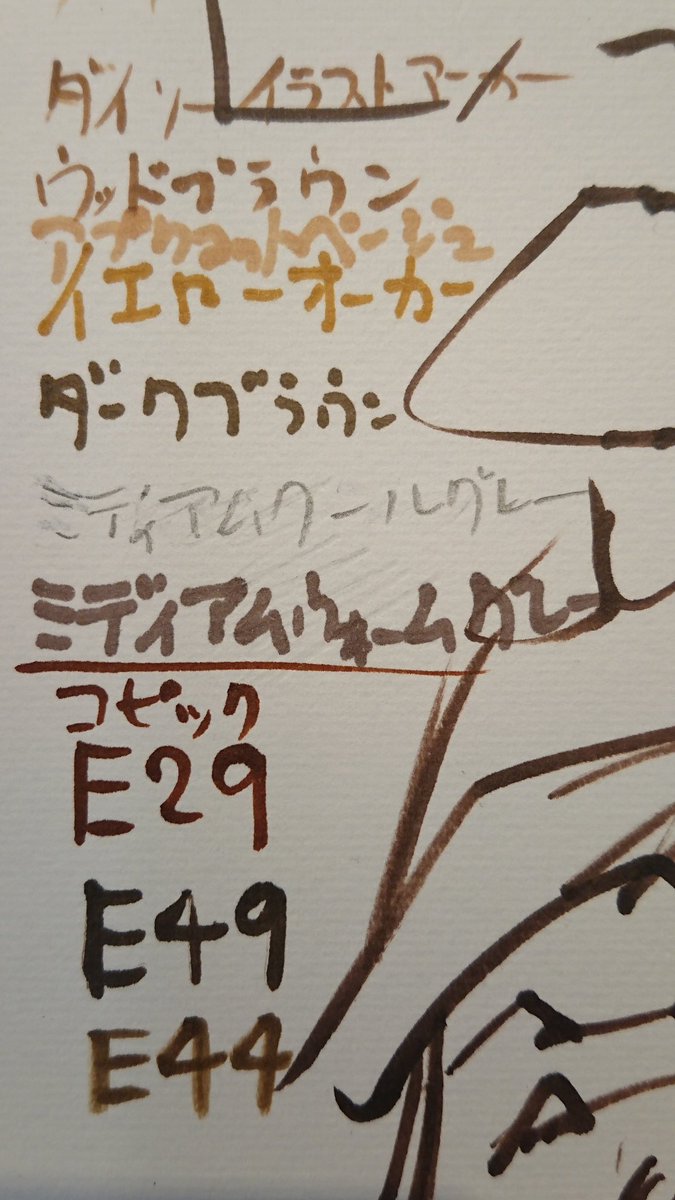 ダイソーイラストマーカー
ウッドブラウン
アプリコットベージュ
イエローオーカー
ダークブラウン
ミディアムクールグレー
ミディアムウォームグレー
コピック
E29
E49
E44